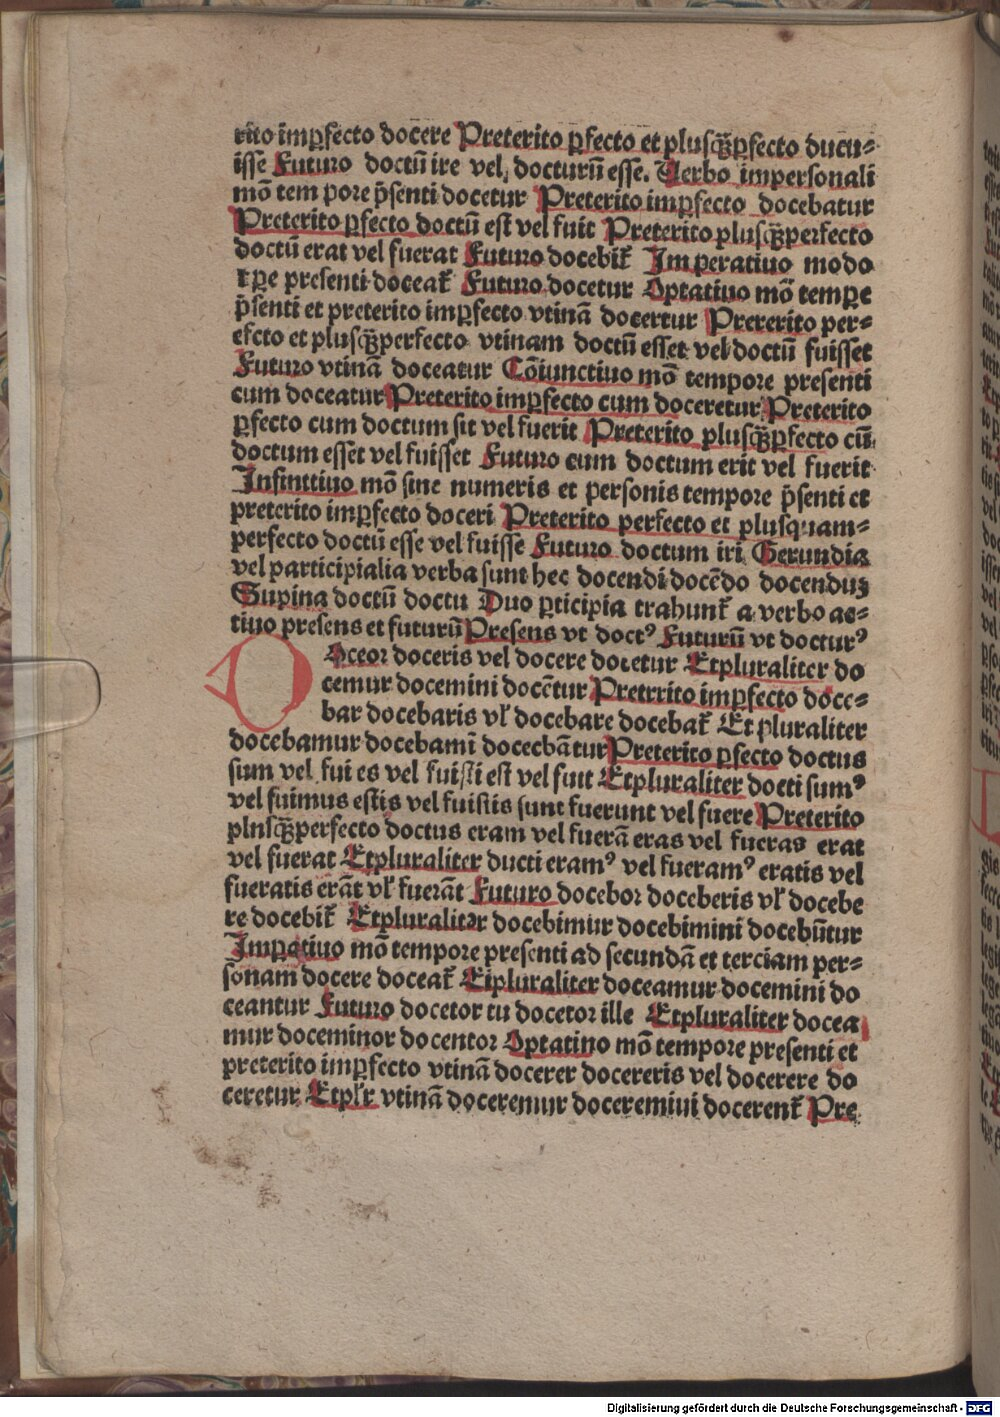 rito imꝑfecto docere Preterito ꝑfecto et plusq̃ꝑfecto ducu⸗
isse Futuro doctũ ire vel, docturũ esse. Uerbo impersonali
mõ tem pore p̃senti docetur Preterito imꝑfecto docebatur
Preterito ꝑfecto doctũ est vel fuit Preterito plusq̃ꝑerfecto
doctũ erat vel fuerat Futuro docebit̃ Imperatiuo modo
tꝑe presenti doceat̃ Futuro docetur Optatiuo mõ tempꝑe
p̃senti et preterito imꝑfecto vtinã docertur Prererito per⸗
efcto et plusq̃ꝑerfecto vtinam doctũ esset vel doctũ fuisset
Futuro vtinã doceatur Cõiunctiuo mõ tempore presenti
cum doceatur Preterito imꝑfecto cum doceretur Preterito
ꝑfecto cum doctum sit vel fuerit Preterito plusq̃ꝑfecto cũ
doctum esset vel fuisset Futuro cum doctum erit vel fuerit
Infinttiuo mõ sine numeris et personis tempore p̃senti et
preterito imꝑfecto doceri Preterito perfecto et plusquam⸗
perfecto doctũ esse vel fuisse Futuro doctum iri Gerundia
vel participialia verba sunt hec docendi docẽdo docendus
Supina doctũ doctu Duo ꝑticipia trahunt̃ a verbo ac⸗
tiuo presens et futurũ Presens vt doctꝰ Futurũ vt docturꝰ
Oceor doceris vel docere docetur Etpluraliter do
cemur docemini docẽtur Pretrrito imꝑfecto doce⸗
bar docebaris vl̃ docebare docebat̃ Et pluraliter
docebamur docebamĩ docecbãtur Preterito ꝑfecto doctus
sum vel fui es vel fuisti est vel fuit Etpluraliter docti sumꝰ
vel fuimus estis vel fuistis sunt fuerunt vel fuere Preterito
plnsq̃ꝑerfecto doctus eram vel fuerã eras vel fueras erat
vel fuerat Etpluraliter ducti eramꝰ vel fueramꝰ eratis vel
fueratis erãt vl̃ fuerãt Futuro docebor doceberis vl̃ docebe
re docebit̃ Etpluraliter docebimur docebimini docebũtur
Imꝑatiuo mõ tempore presenti ad secundã et terciam per⸗
sonam docere doceat̃ Etpluraliter doceamur docemini do
ceantur Futuro docetor tu docetor ille Etpluraliter docea
mur doceminor docentor Optatino mõ tempore presenti et
preterito imꝑfecto vtinã docerer docereris vel docerere do
ceretur Etpl̃r vtinã doceremur doceremiui docerent̃ Pre
Digitalisierung gefördert durch die Deutsche Forschungsgemeinschaft - DFG